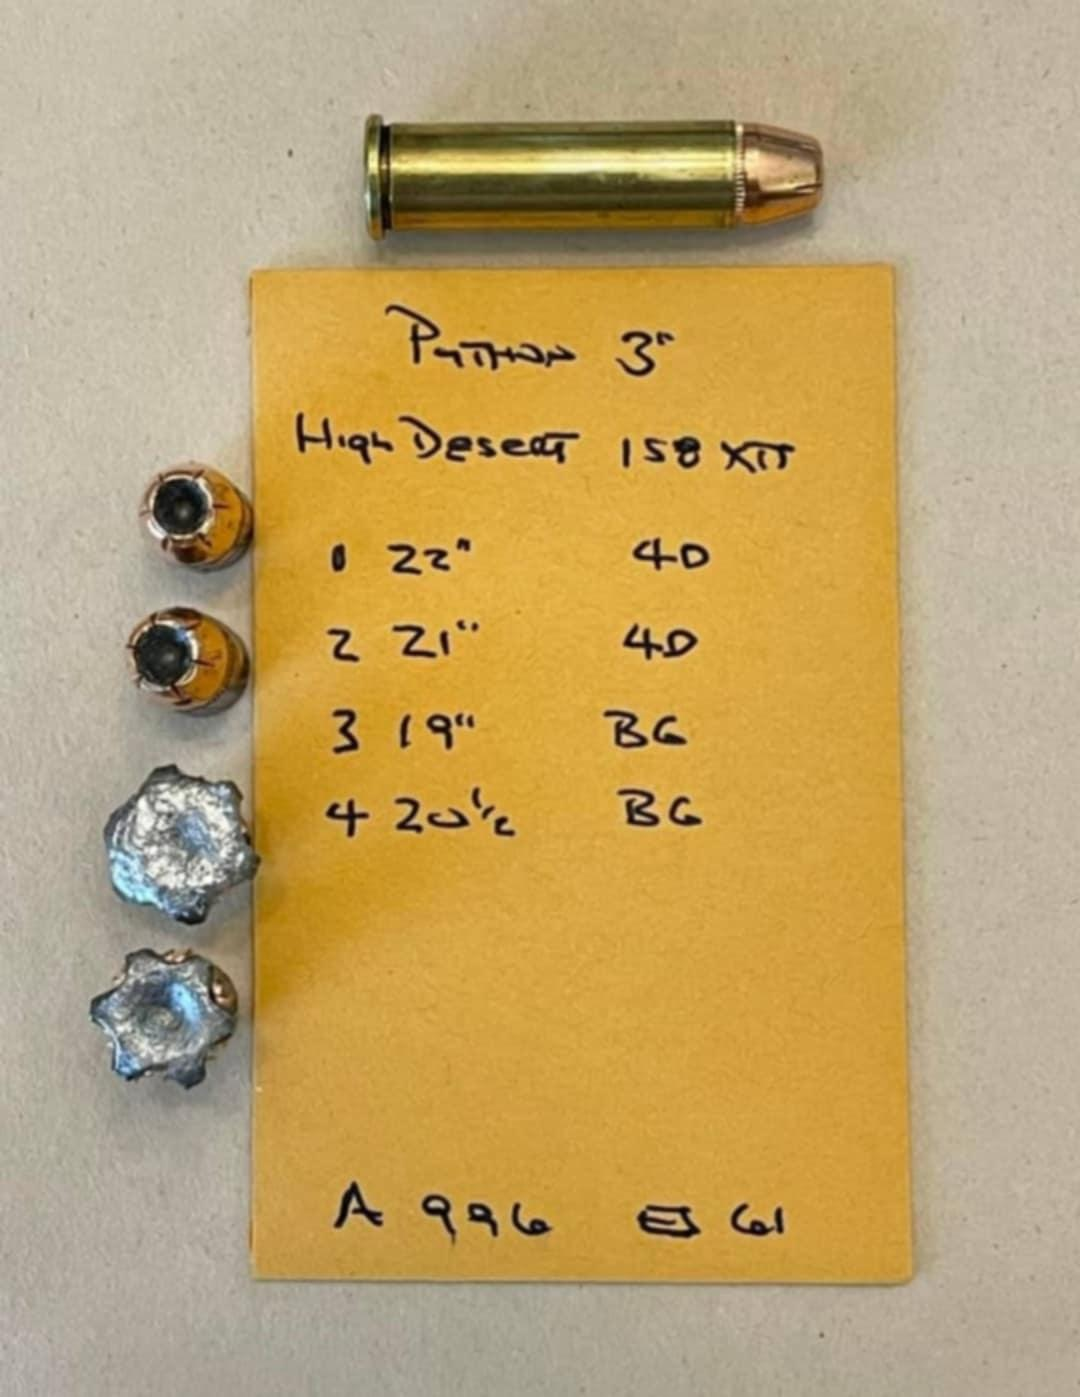 Python 3"
High Desert 158 XTP
1 22" 4D
2 21" 4D
3 19" BG
4 20 1/2 BG
A 996 ES 61